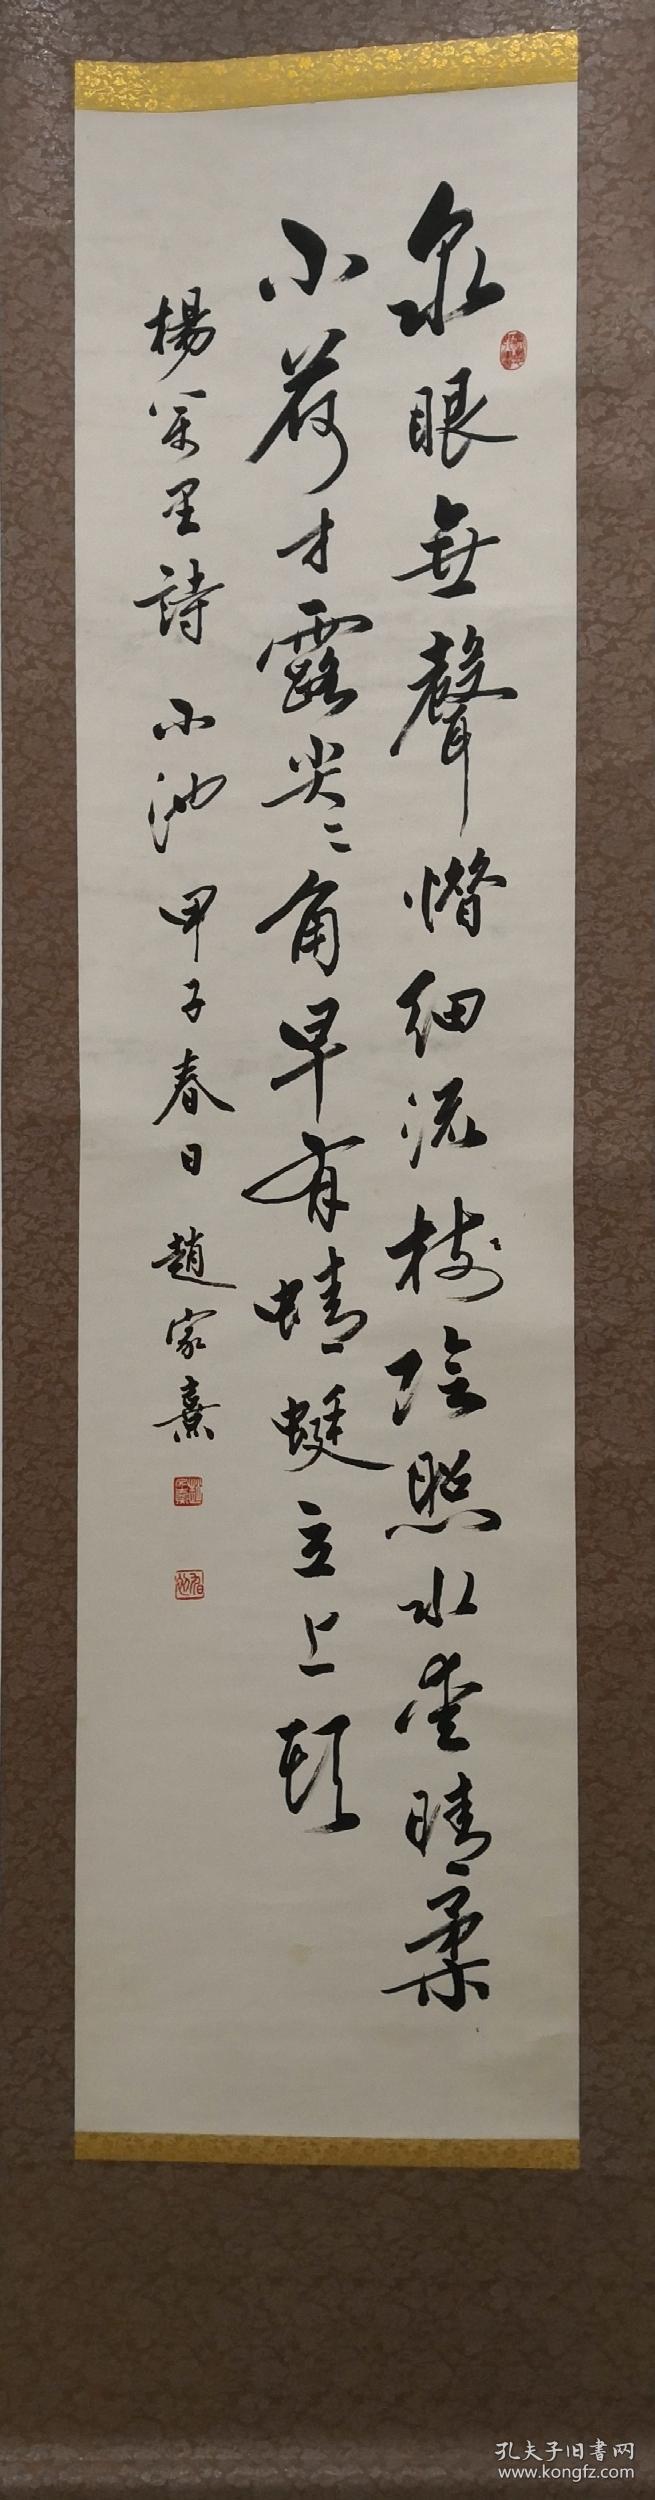 泉眼無聲惜細流樹陰照水愛晴柔
小荷才露尖〻角早有蜻蜓立上頭
楊萬里詩 小池 甲子春日 趙家熹
孔夫子旧书网
www.kongfz.com